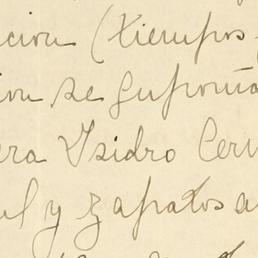 cion (tiempos
ion se suponia
era Ysidro Cer
ul y zapatos a